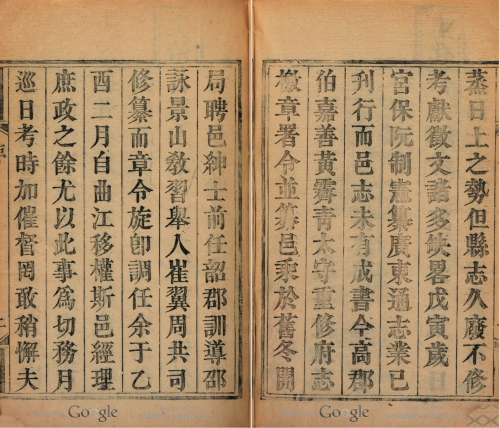 蒸日上之勢但縣志久廢不修
考獻徵文諸多缺畧戊寅歲
宮保阮制憲纂廣東通志業已
刋行而邑志未有成書今高郡
伯嘉善黃霽青太守重修府志
檄章署令並纂邑乘於舊冬開
局聘邑紳士前任韶郡訓導邵
詠景山敎習舉人崔翼周共司
修纂而章令旋卽調任余于乙
酉二月自曲江移權斯邑經理
庶政之餘尤以此事爲切務月
巡日考時加催督罔敢稍懈夫
Google
Google